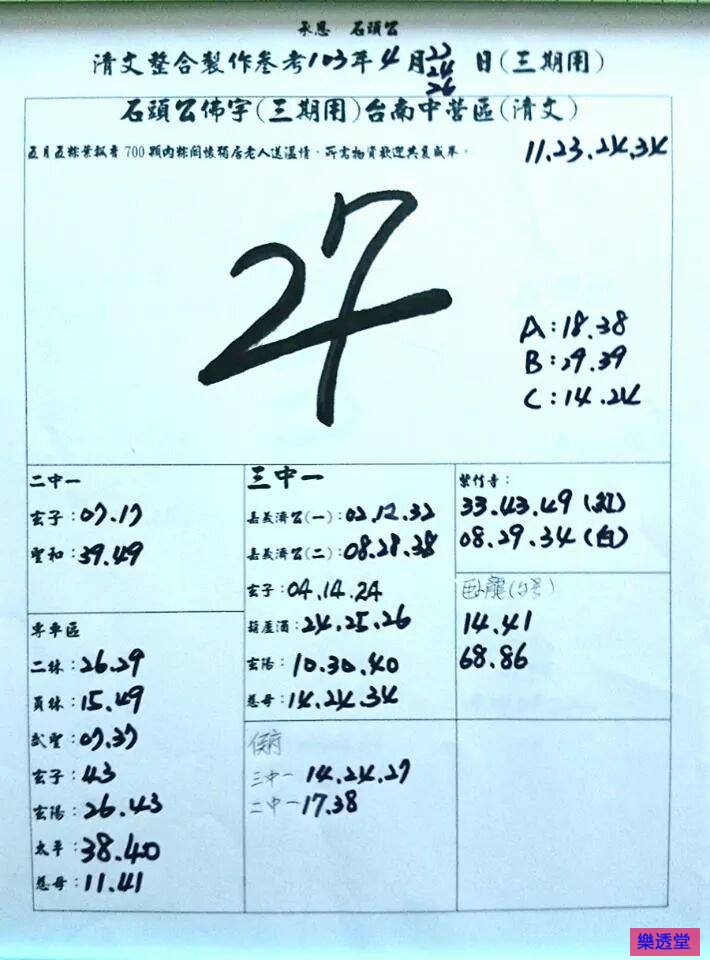 承恩 石頭公
清文整合製作參考103年4月22 24 26日(三期用)
石頭公佛字(三期用)台南中營區(清文)
五月五粽葉飄香700顆肉粽關懷獨居老人送溫情、所需物資歡迎共襄成舉。
11.23.24.34
27
A:18.38
B:29.39
C:14.24
二中一
玄子:07.17
聖和:39.49
專車區
二林:26.29
員林:15.49
武聖:07.37
玄子:43
玄陽:26.43
太平:38.40
慈母:11.41
三中一
嘉義濟公(一):02.12.32
嘉義濟公(二):08.28.38
玄子:04.14.24
葫蘆酒:24.25.26
玄陽:10.30.40
慈母:14.24.34
三中一 14.24.27
二中一 17.38
紫竹寺:
33.43.49(紅)
08.29.34(白)
臥龍
14.41
68.86
樂透堂